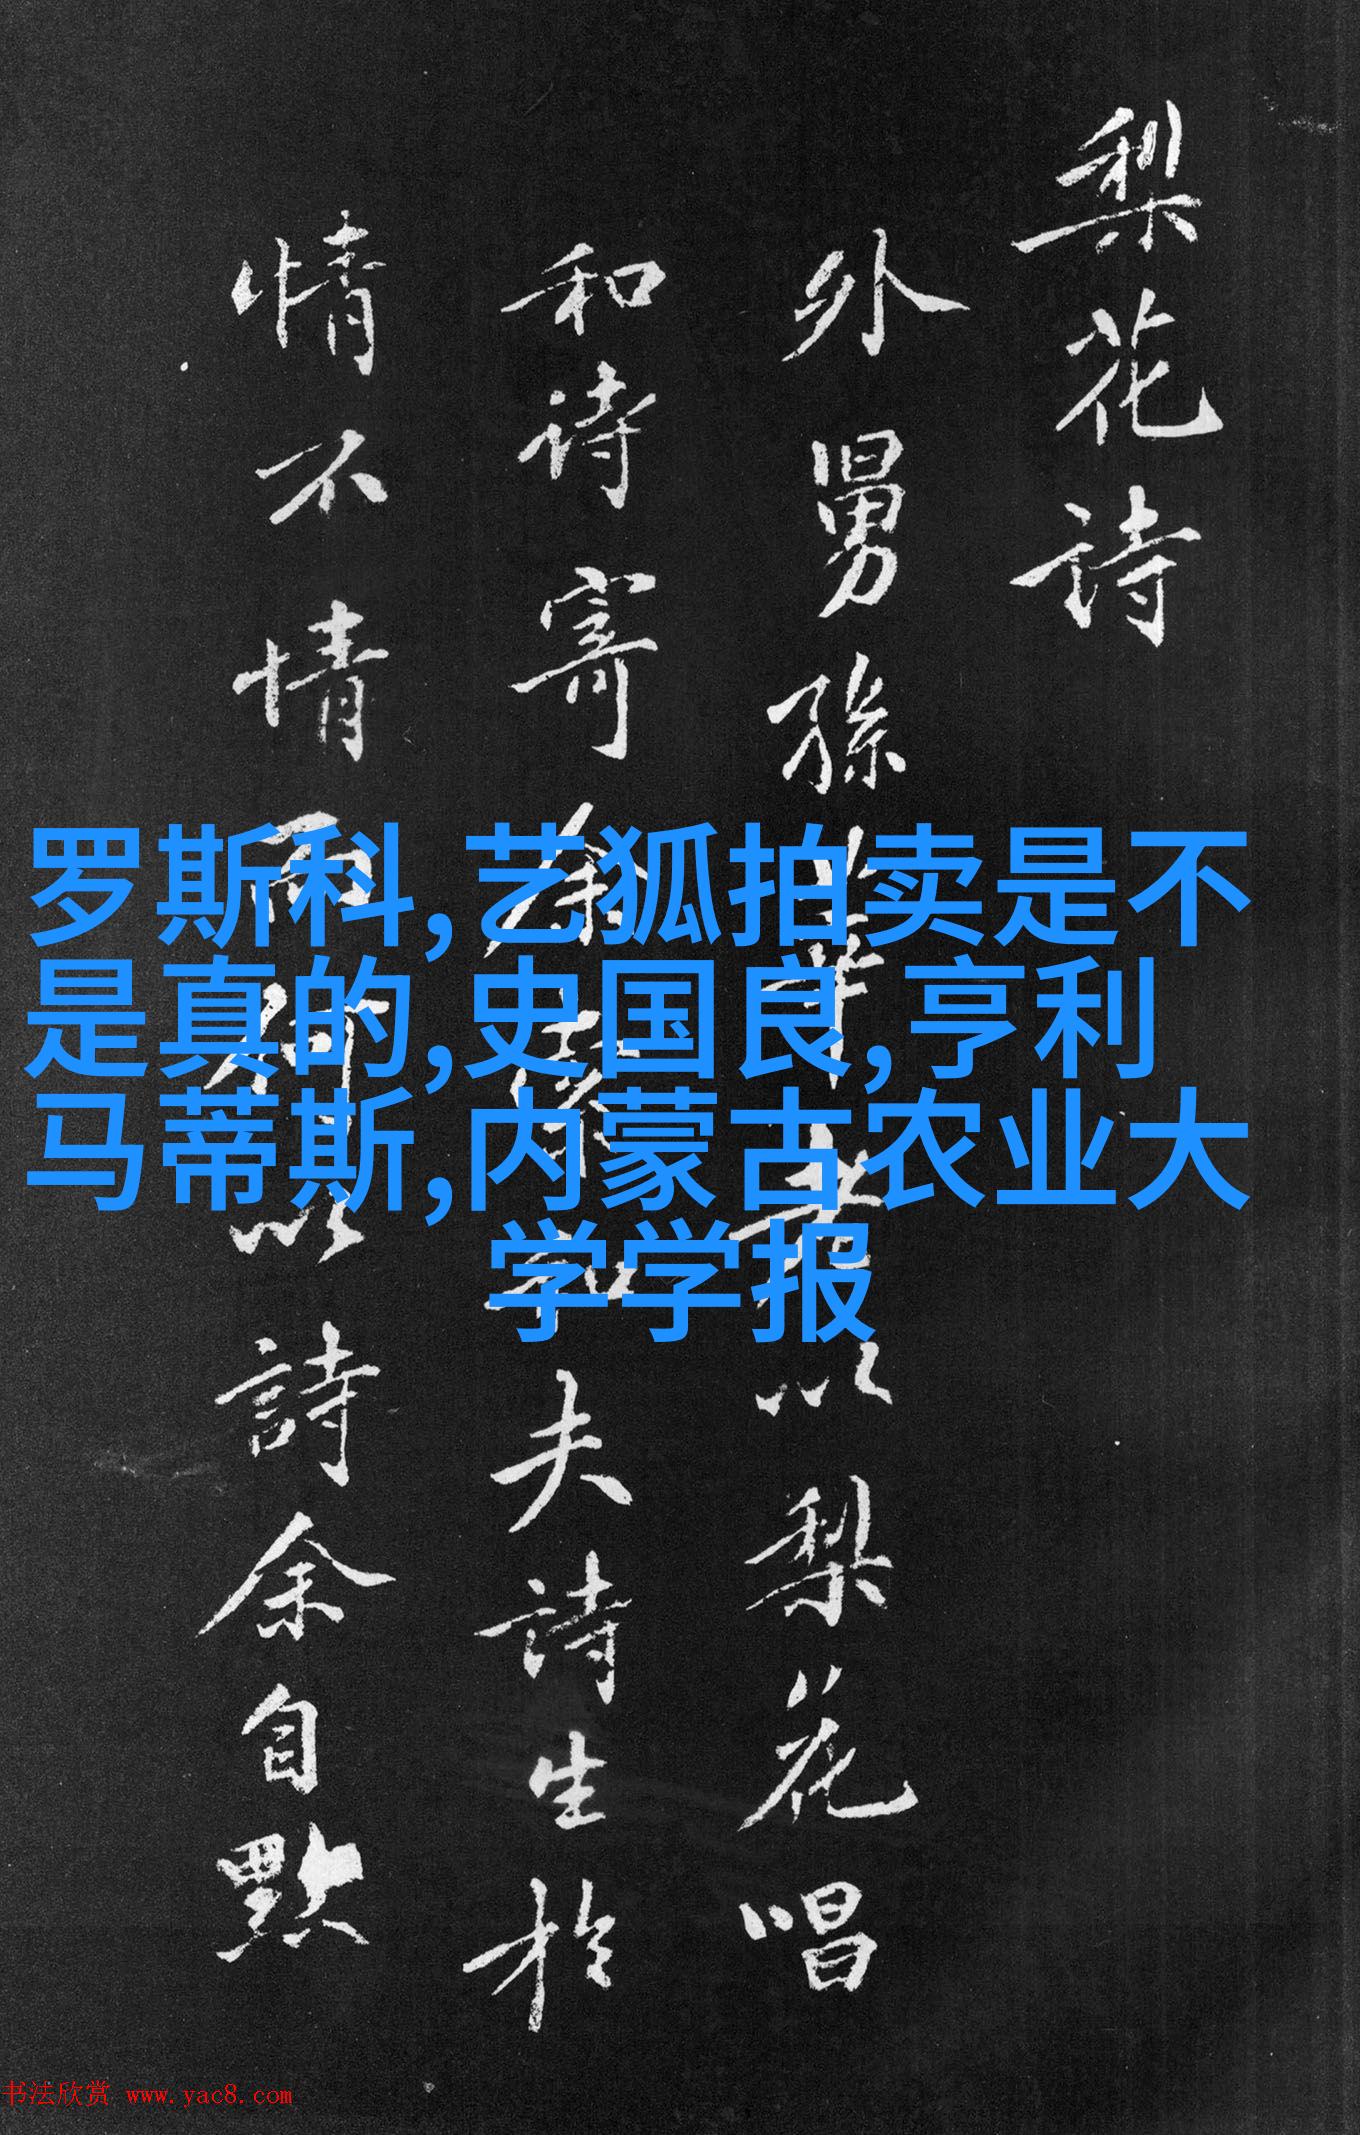 梨花诗
外舅孫
以梨花唱
和诗寄余
和夫詩生於
情不情而
以詩余自黙
罗斯科,艺狐拍卖是不
是真的,史国良,亨利
马蒂斯,内蒙古农业大
学学报
书法欣赏 www.yac8.com